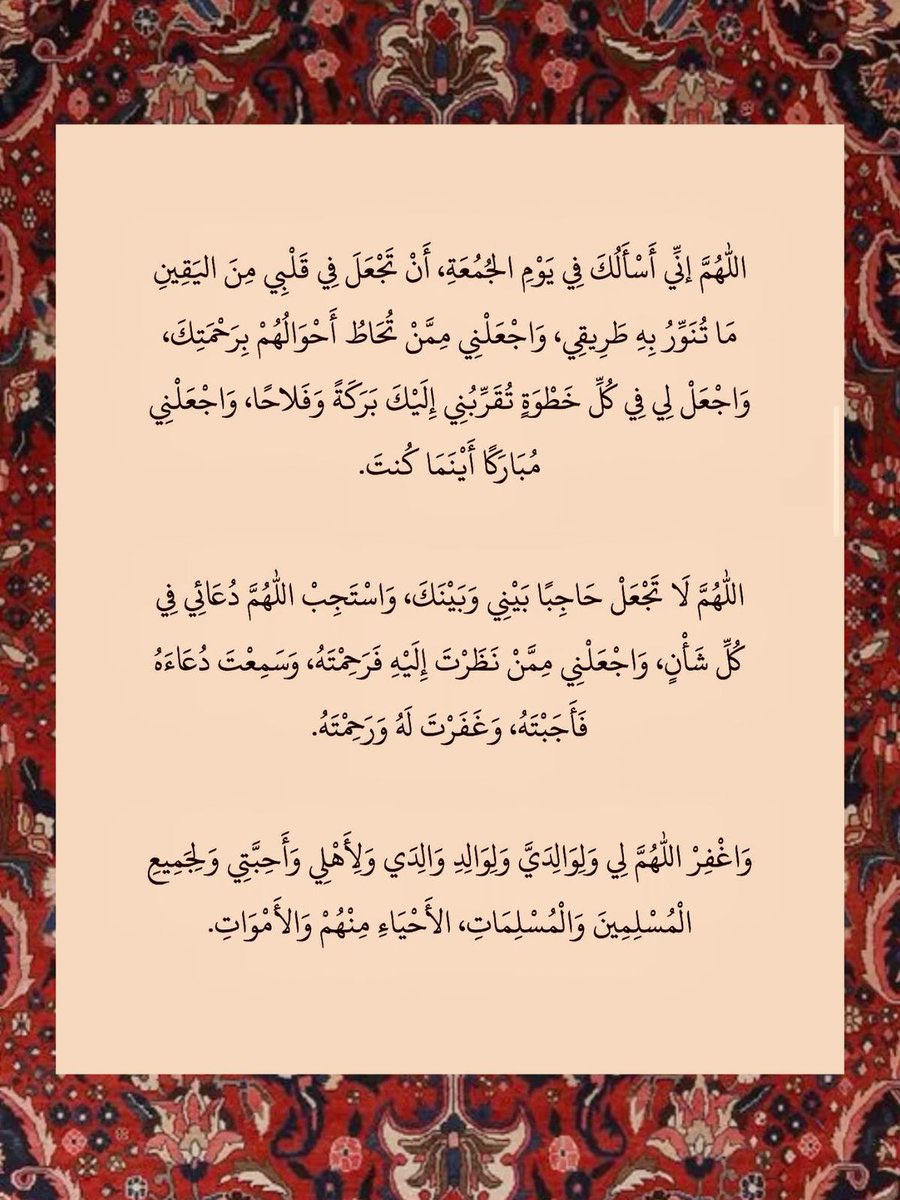 اللَّهُمَّ إنِّي أَسْأَلُكَ فِي يَوْمِ الجُمُعَةِ، أَنْ تَجْعَلَ فِي قَلْبِي مِنَ اليَقِينِ
مَا تُنَوِّرُ بِهِ طَرِيقِي، وَاجْعَلْنِي مِمَّنْ تُحَاطُ أَحْوَالُهُمْ بِرَحْمَتِكَ،
وَاجْعَلْ لِي فِي كُلِّ خَطْوَةٍ تُقَرِّبُنِي إِلَيْكَ بَرَكَةً وَفَلَاحًا، وَاجْعَلْنِي
مُبَارَكًا أَيْنَمَا كُنتَ.
اللَّهُمَّ لَا تَجْعَلْ حَاجِبًا بَيْنِي وَبَيْنَكَ، وَاسْتَجِبْ اللَّهُمَّ دُعَائِي فِي
كُلِّ شَأْنٍ، وَاجْعَلْنِي مِمَّنْ نَظَرْتَ إِلَيْهِ فَرَحِمْتَهُ، وَسَمِعْتَ دُعَاءَهُ
فَأَجَبْتَهُ، وَغَفَرْتَ لَهُ وَرَحِمْتَهُ.
وَاغْفِرْ اللَّهُمَّ لِي وَلِوَالِدَيَّ وَلِوَالِدِ وَالِدَي وَلِأَهْلِي وَأَحِبَّتِي وَلِجَمِيعِ
الْمُسْلِمِينَ وَالْمُسْلِمَاتِ، الأَحْيَاءِ مِنْهُمْ وَالأَمْوَاتِ.